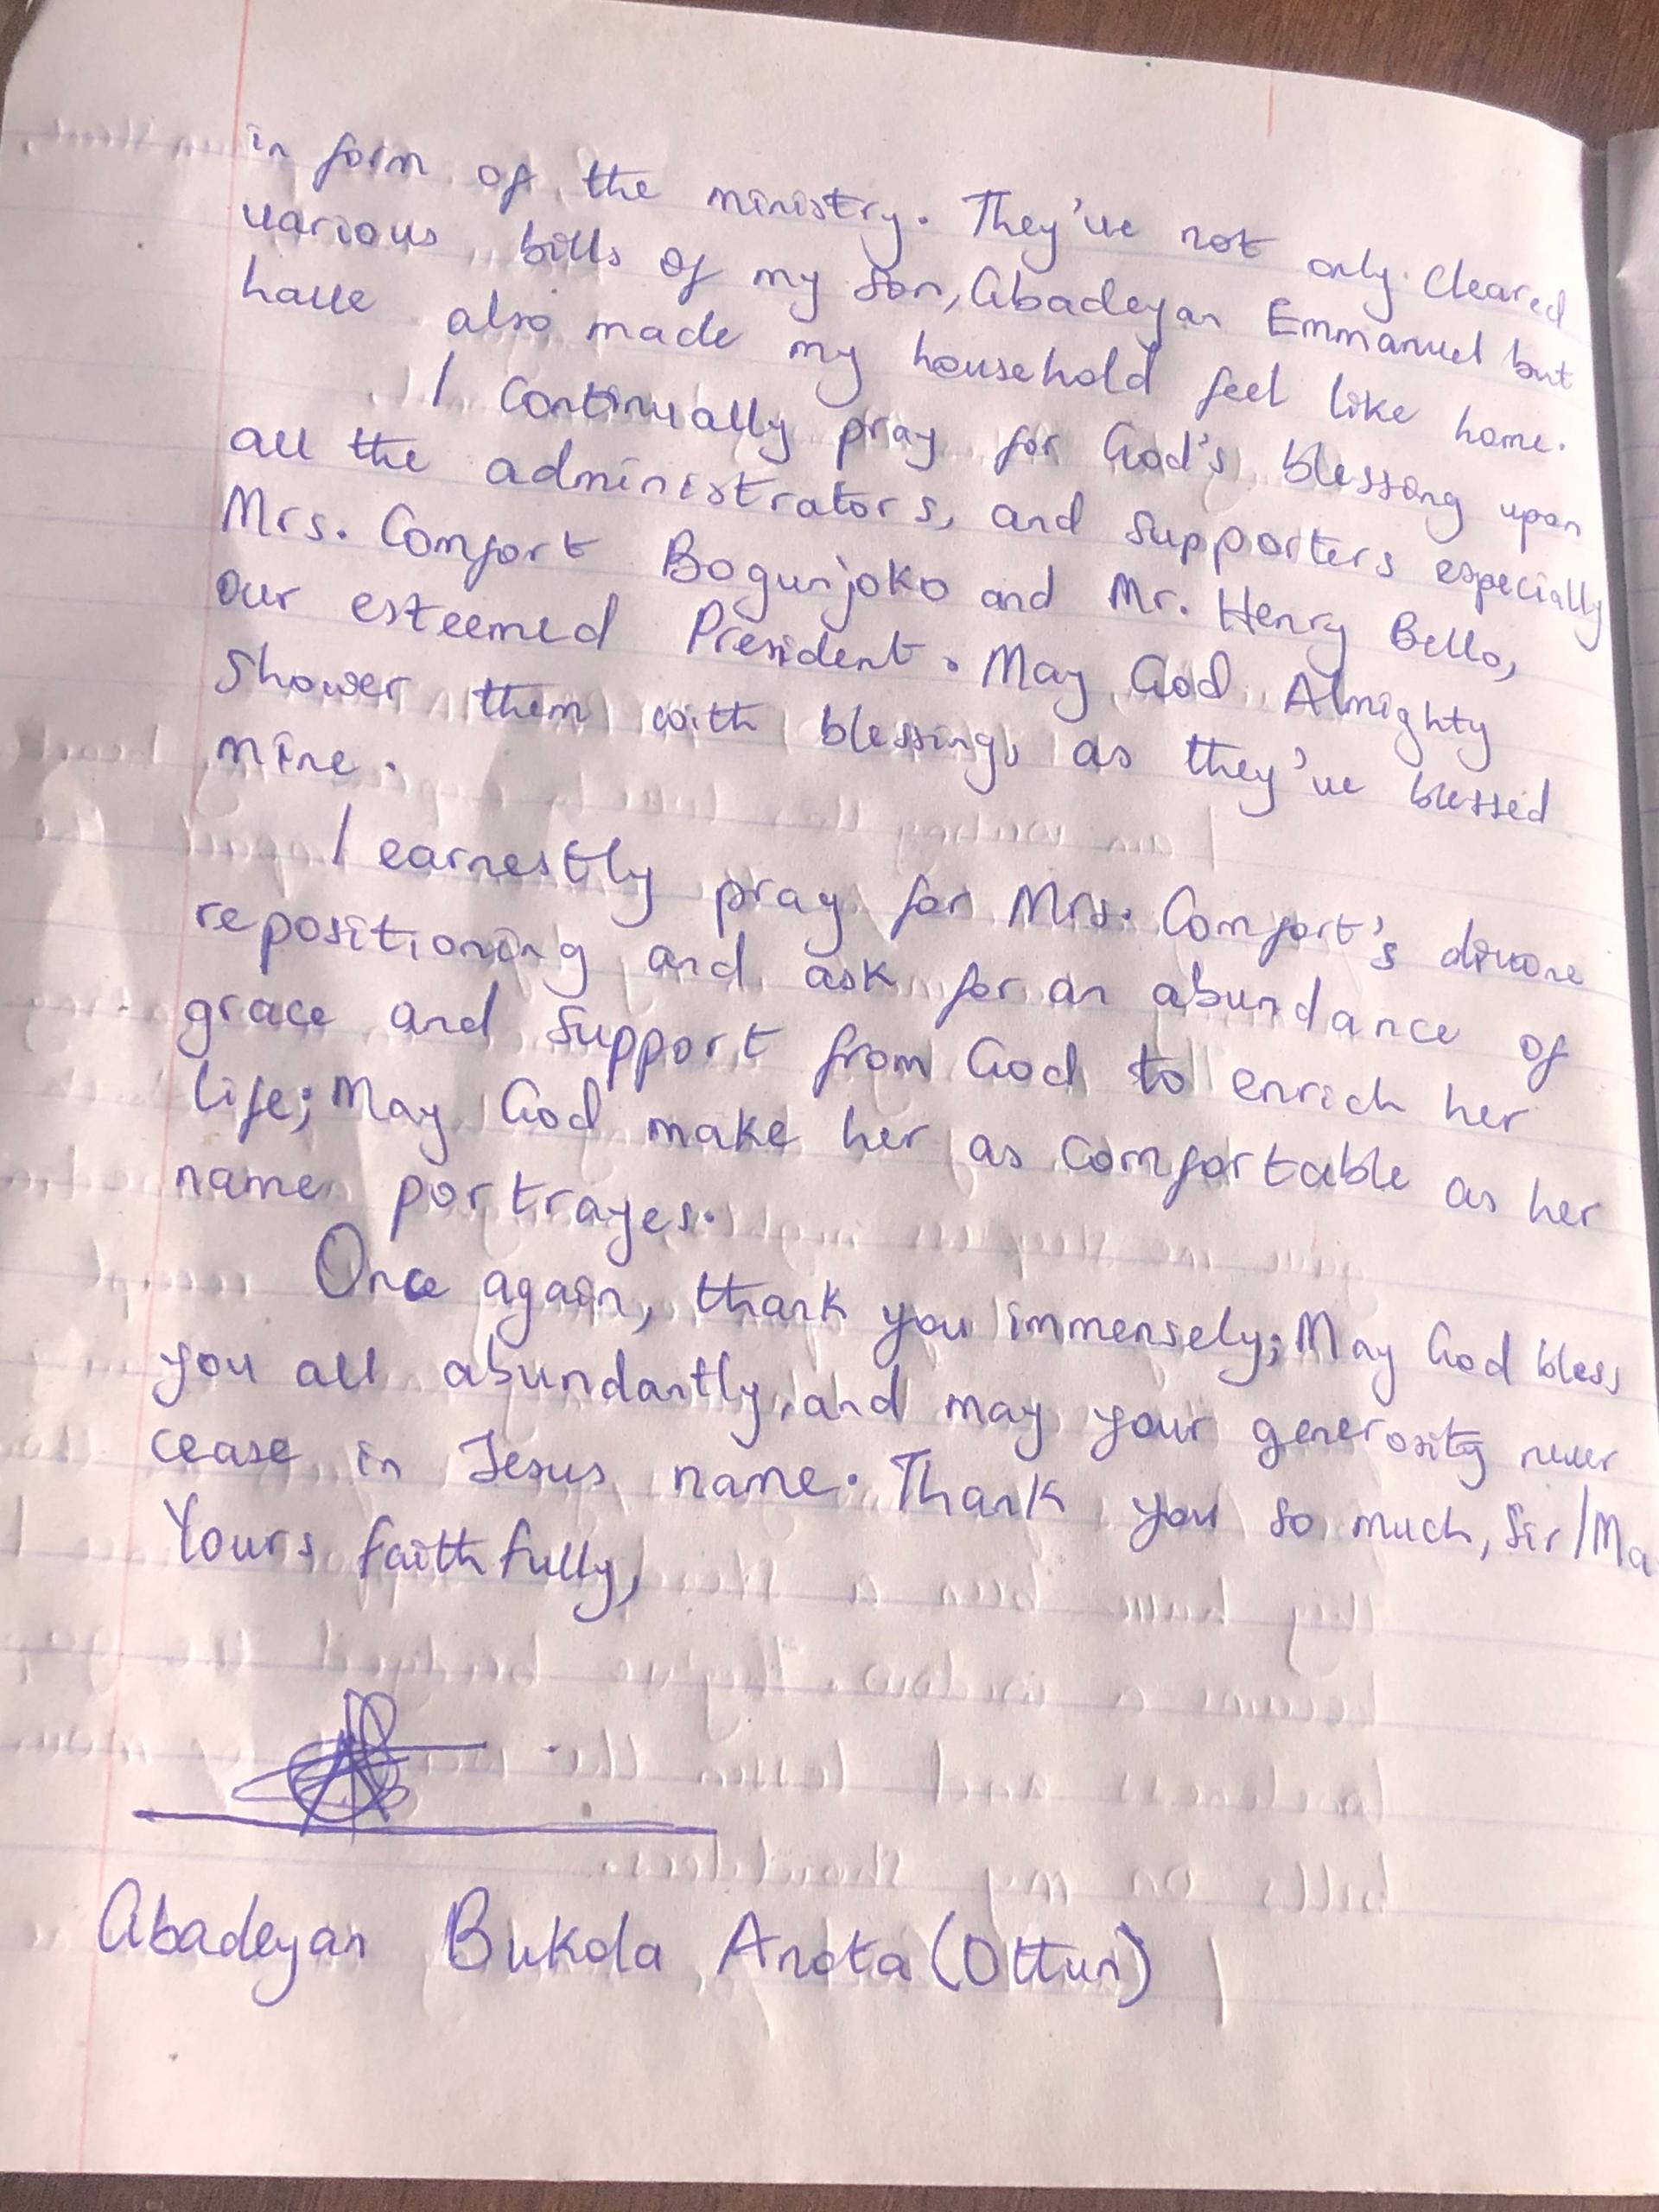 in form of the ministry. They've not only cleared
various bills of my son, Abadeyan Emmanuel but
have also made my household feel like home.
I continually pray for God's blessing upon
all the administrators, and supporters especially
Mrs. Comfort Bogunjoko and Mr. Henry Bello,
our esteemed President. May God Almighty
shower them with blessings as they've blessed
mine.
I earnestly pray for Mrs. Comfort's divine
repositioning and ask for an abundance of
grace and support from God to enrich her
life; May God make her as comfortable as her
name portrayes.
Once again, thank you immensely; May God bless
you all abundantly, and may your generosity never
cease in Jesus name. Thank you so much, Sir/Ma
Yours faithfully,
Abadeyan Bukola Anota (Ottun)